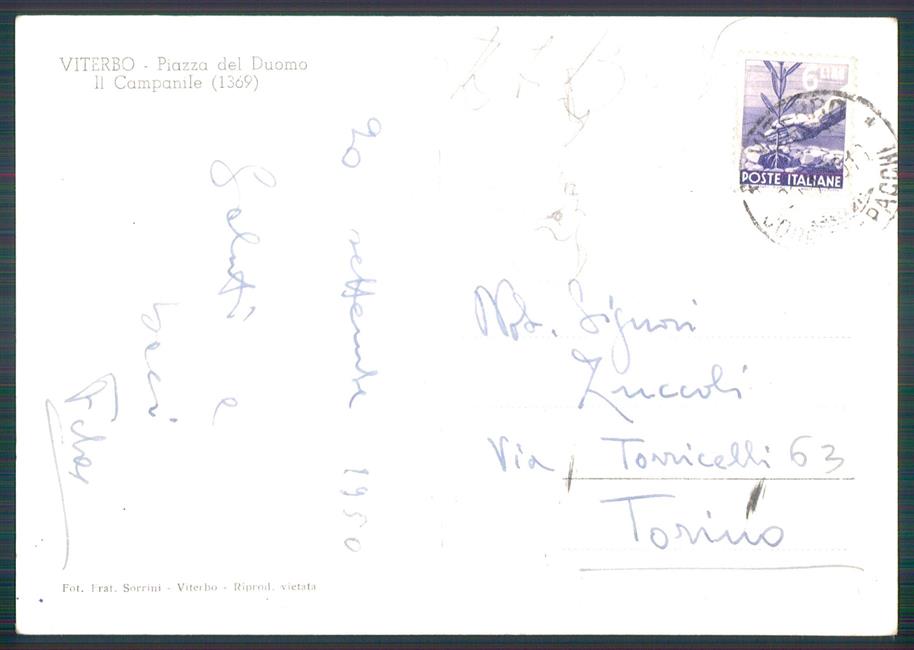 VITERBO - Piazza del Duomo
Il Campanile (1369)
6 LIRE
POSTE ITALIANE
VITERBO
20 settembre 1950
Saluti e
baci
Nob. Signori
Zuccoli
Via Torricelli 63
Torino
Fot. Frat. Sorrini - Viterbo - Riprod. vietata